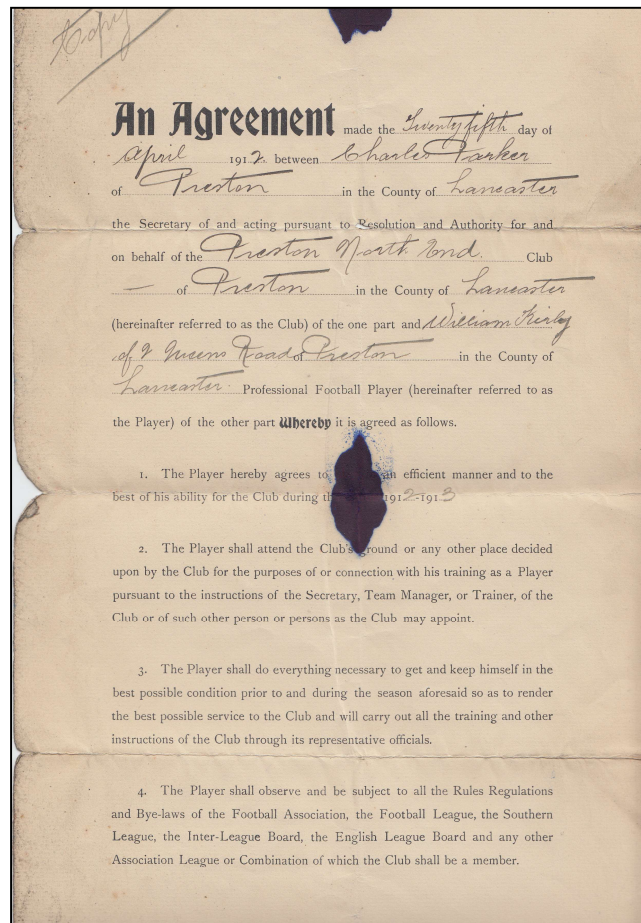 Copy
An Agreement made the Twenty fifth day of
April 1912 between Charles Parker
of Preston in the County of Lancaster
the Secretary of and acting pursuant to Resolution and Authority for and
on behalf of the Preston North End. Club
— of Preston in the County of Lancaster
(hereinafter referred to as the Club) of the one part and William Kirby
of 2 Queens Road of Preston in the County of
Lancaster. Professional Football Player (hereinafter referred to as
the Player) of the other part Whereby it is agreed as follows.
1. The Player hereby agrees to efficient manner and to the
best of his ability for the Club during 1912-1913
2. The Player shall attend the Club's ground or any other place decided
upon by the Club for the purposes of or connection with his training as a Player
pursuant to the instructions of the Secretary, Team Manager, or Trainer, of the
Club or of such other person or persons as the Club may appoint.
3. The Player shall do everything necessary to get and keep himself in the
best possible condition prior to and during the season aforesaid so as to render
the best possible service to the Club and will carry out all the training and other
instructions of the Club through its representative officials.
4. The Player shall observe and be subject to all the Rules Regulations
and Bye-laws of the Football Association, the Football League, the Southern
League, the Inter-League Board, the English League Board and any other
Association League or Combination of which the Club shall be a member.